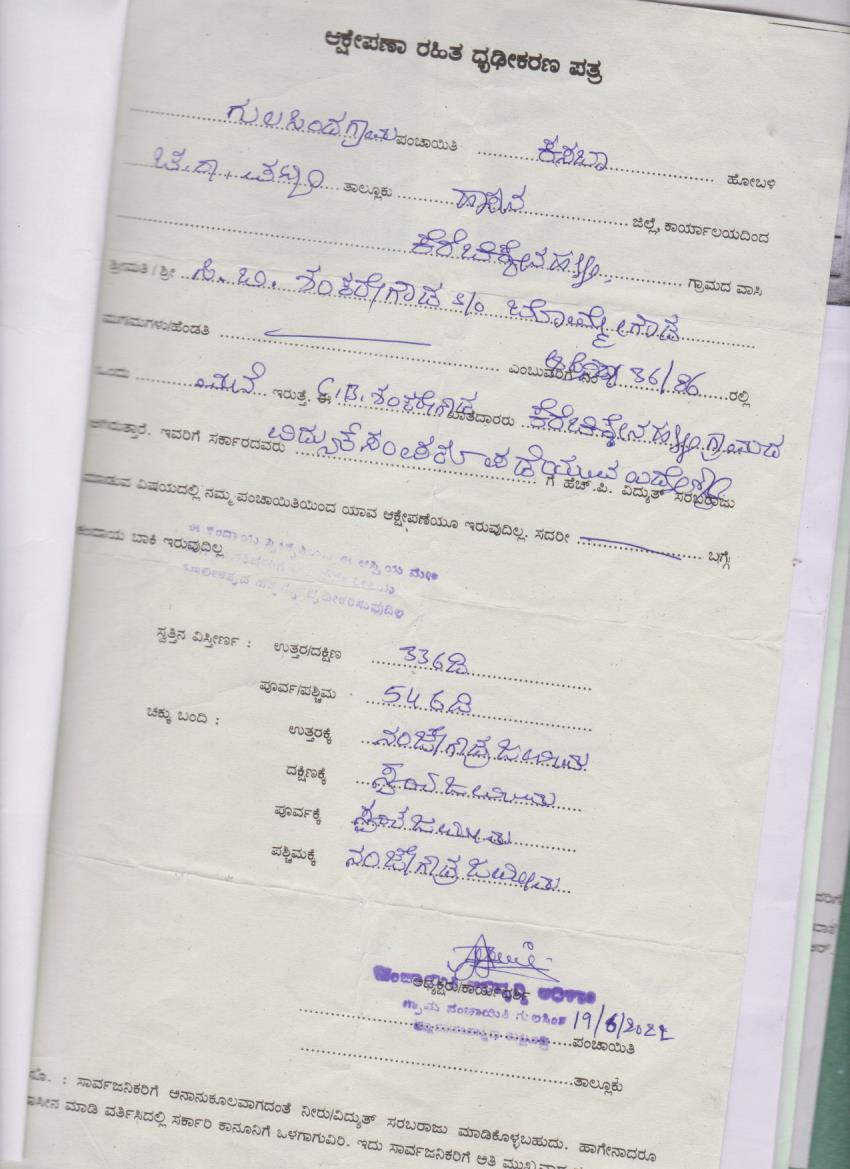 ಆಕ್ಷೇಪಣಾ ರಹಿತ ಧೃಢೀಕರಣ ಪತ್ರ
ಗುಲಸಿಂದಗ್ರಾಮ ಪಂಚಾಯಿತಿ ಕಸಬಾ ಹೋಬಳಿ
ಚ.ರಾ. ಪಟ್ಟಣ ತಾಲ್ಲೂಕು ಹಾಸನ ಜಿಲ್ಲೆ, ಕಾರ್ಯಾಲಯದಿಂದ
ಕೆರೆಚಿಕ್ಕೇನಹಳ್ಳಿ ಗ್ರಾಮದ ವಾಸಿ
ಶ್ರೀಮತಿ / ಶ್ರೀ ಸಿ. ಬಿ. ಶಂಕರೇಗೌಡ s/o ಬೊಮ್ಮೇಗೌಡ
ಮಗ/ಮಗಳು/ಹೆಂಡತಿ ಎಂಬುವರಿಗೆ ನಂ 36/86 ರಲ್ಲಿ
ಒಂದು ಮನೆ ಇರುತ್ತೆ. ಈ C.B. ಶಂಕರೇಗೌಡ ಖಾತೆದಾರರು ಕೆರೆಚಿಕ್ಕೇನಹಳ್ಳಿ ಗ್ರಾಮದ
ಆಗಿರುತ್ತಾರೆ. ಇವರಿಗೆ ಸರ್ಕಾರದವರು ಪಡೆಯುವ ಗೆ ಹೆಚ್.ಪಿ. ವಿದ್ಯುತ್ ಸರಬರಾಜು
ಮಾಡುವ ವಿಷಯದಲ್ಲಿ ನಮ್ಮ ಪಂಚಾಯಿತಿಯಿಂದ ಯಾವ ಆಕ್ಷೇಪಣೆಯೂ ಇರುವುದಿಲ್ಲ. ಸದರೀ ಬಗ್ಗೆ
ಕಂದಾಯ ಬಾಕಿ ಇರುವುದಿಲ್ಲ
ಸ್ವತ್ತಿನ ವಿಸ್ತೀರ್ಣ : ಉತ್ತರ/ದಕ್ಷಿಣ 336ಡಿ
ಪೂರ್ವ/ಪಶ್ಚಿಮ 546ಡಿ
ಚಕ್ಕು ಬಂದಿ : ಉತ್ತರಕ್ಕೆ ನಂಜೇಗೌಡ್ರ ಜಮೀನು
ದಕ್ಷಿಣಕ್ಕೆ ಸ್ವಂತ ಜಮೀನು
ಪೂರ್ವಕ್ಕೆ ಸ್ವಂತ ಜಮೀನು
ಪಶ್ಚಿಮಕ್ಕೆ ನಂಜೇಗೌಡ್ರ ಜಮೀನು
ಅಧ್ಯಕ್ಷರು/ಕಾರ್ಯದರ್ಶಿ
ಗ್ರಾಮ ಪಂಚಾಯಿತಿ ಗುಲಸಿಂದ 19/6/2022
ಪಂಚಾಯಿತಿ
ತಾಲ್ಲೂಕು
ಸೂ. : ಸಾರ್ವಜನಿಕರಿಗೆ ಅನಾನುಕೂಲವಾಗದಂತೆ ನೀರು/ವಿದ್ಯುತ್ ಸರಬರಾಜು ಮಾಡಿಕೊಳ್ಳಬಹುದು. ಹಾಗೇನಾದರೂ
ಮಾಡಿ ವರ್ತಿಸಿದಲ್ಲಿ ಸರ್ಕಾರಿ ಕಾನೂನಿಗೆ ಒಳಗಾಗುವಿರಿ. ಇದು ಸಾರ್ವಜನಿಕರಿಗೆ ಅತಿ